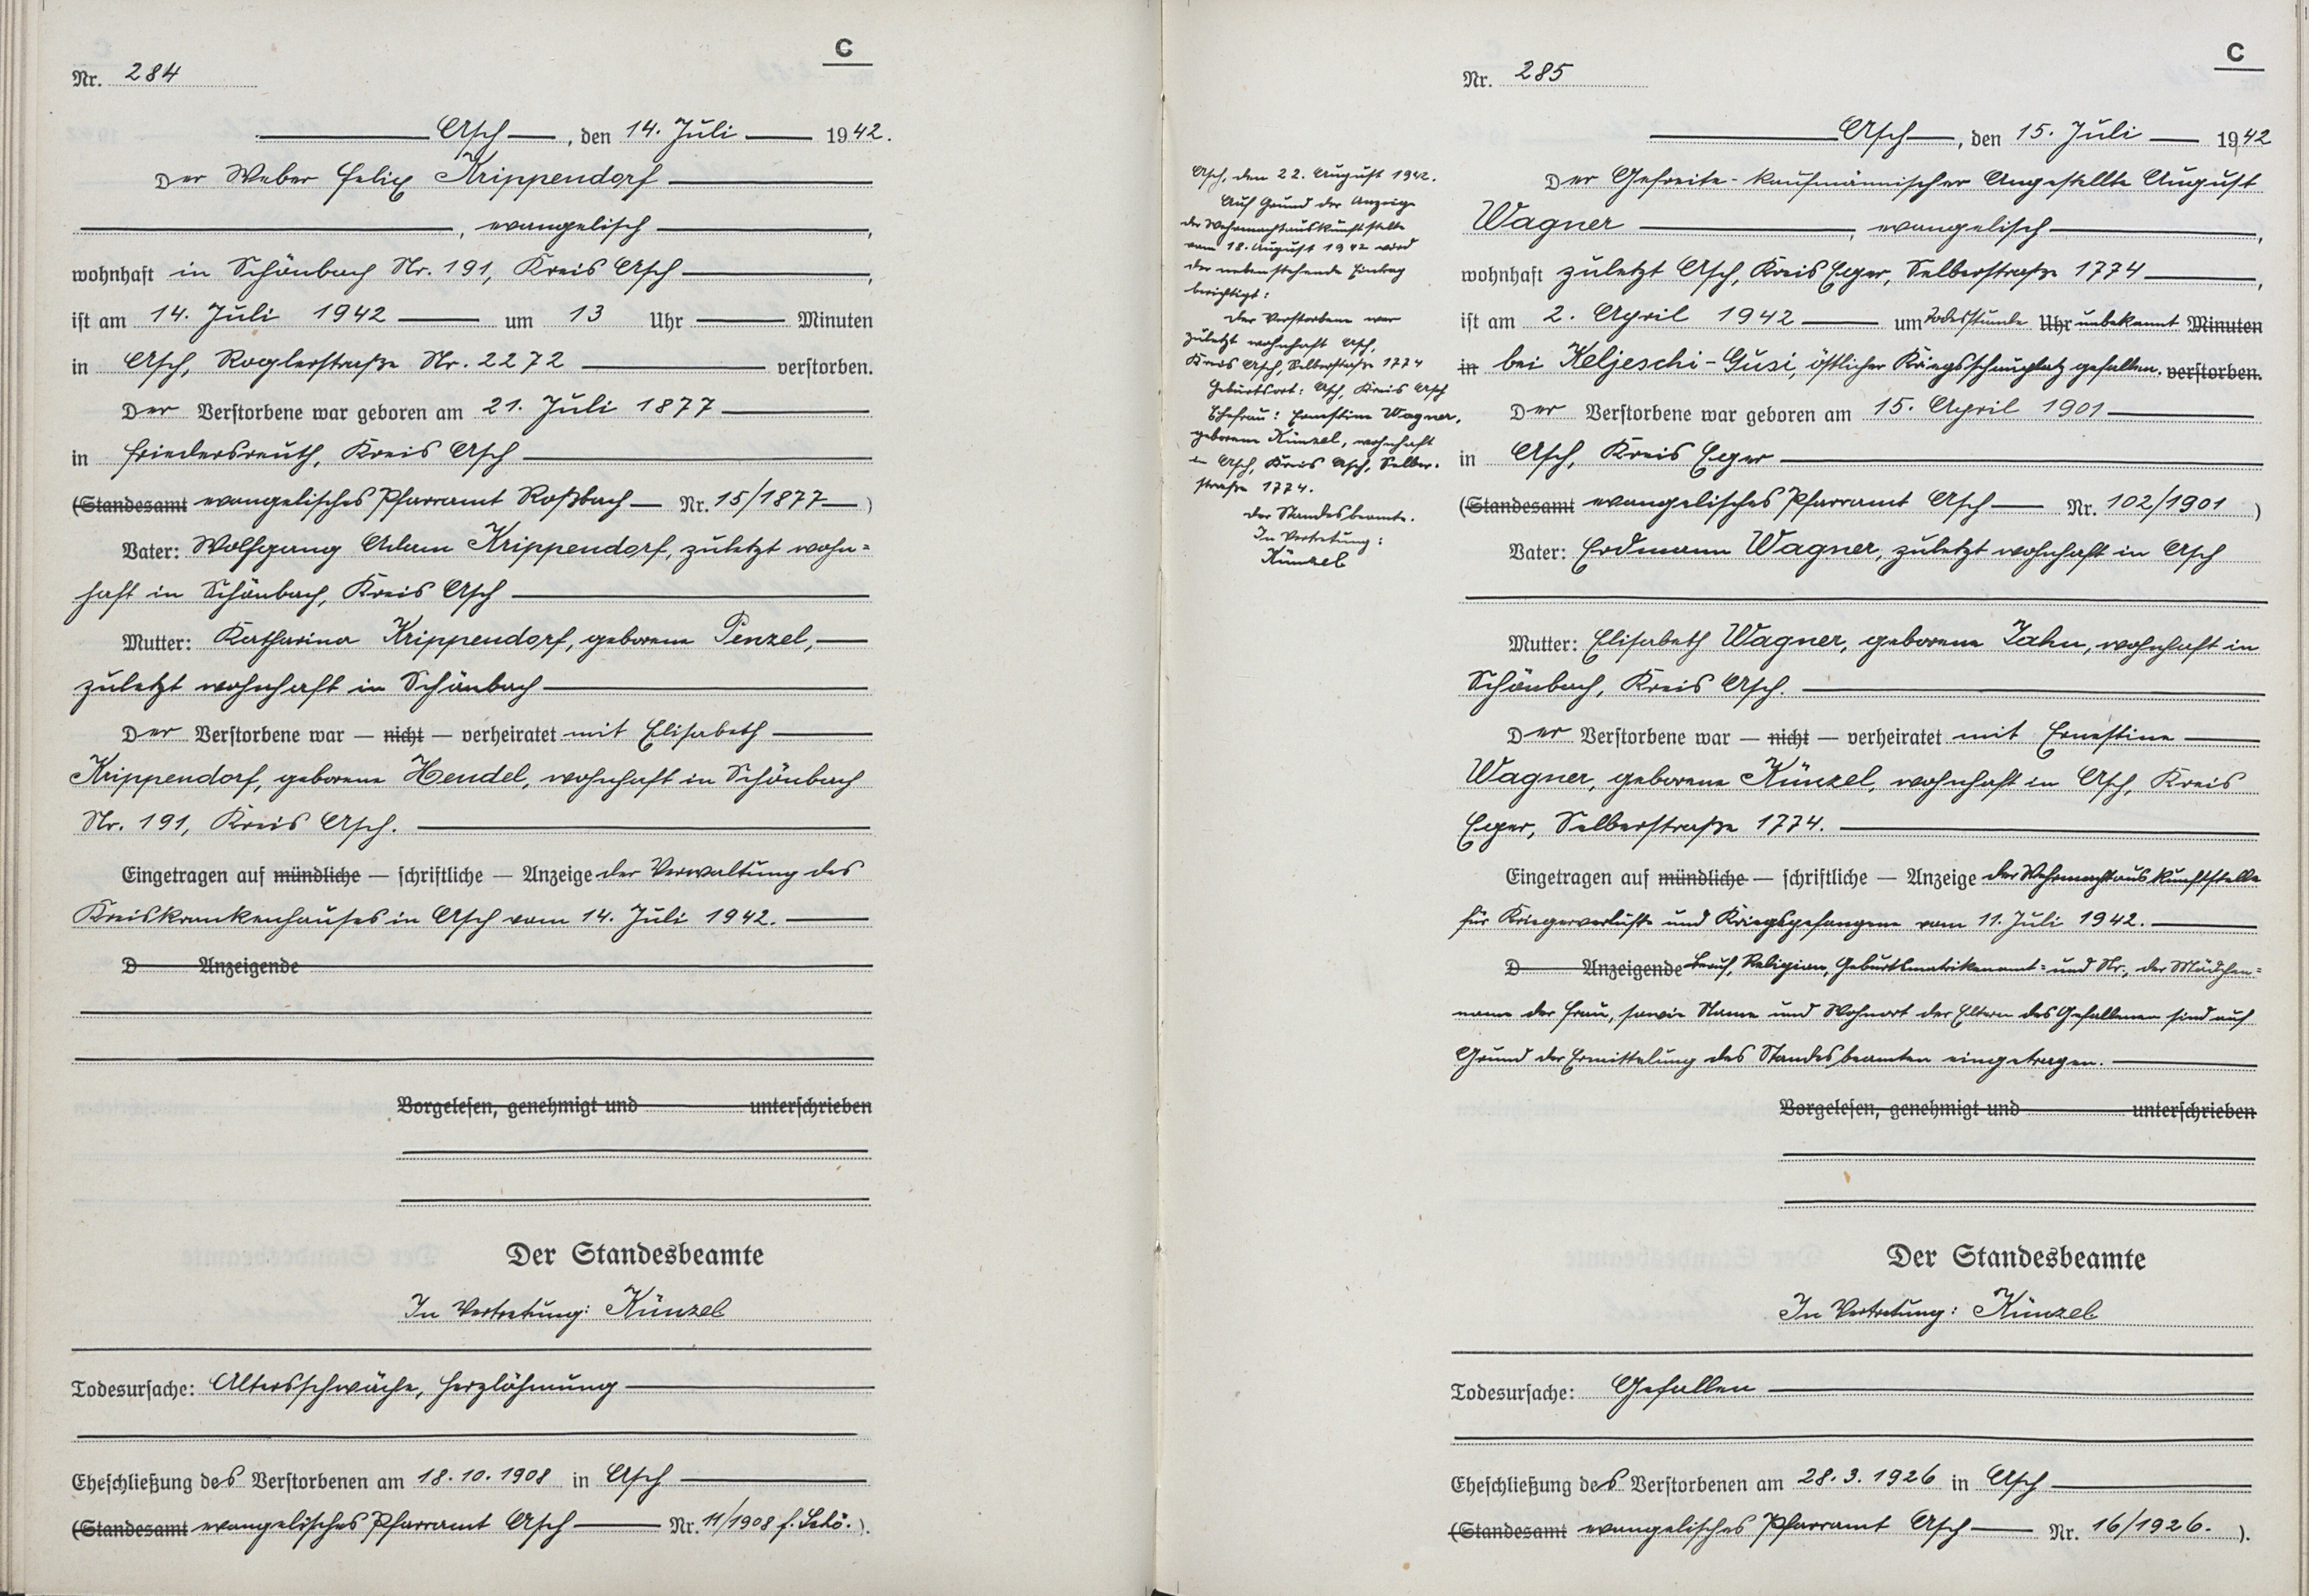 C
Nr. 284
Asch, den 14. Juli 1942.
Der Weber Felix Krippendorf
, evangelisch ,
wohnhaft in Schönbach Nr. 191, Kreis Asch ,
ist am 14. Juli 1942 um 13 Uhr Minuten
in Asch, Roglerstraße Nr. 2272 verstorben.
Der Verstorbene war geboren am 21. Juli 1877
in Friedersreuth, Kreis Asch
(Standesamt evangelisches Pfarramt Roßbach Nr. 15/1877 )
Vater: Wolfgang Adam Krippendorf, zuletzt wohn=
haft in Schönbach, Kreis Asch
Mutter: Katharina Krippendorf, geborene Penzel,
zuletzt wohnhaft in Schönbach
Der Verstorbene war — nicht — verheiratet mit Elisabeth
Krippendorf, geborene Hendel, wohnhaft in Schönbach
Nr. 191, Kreis Asch.
Eingetragen auf mündliche — schriftliche — Anzeige der Verwaltung des
Kreiskrankenhauses in Asch vom 14. Juli 1942.
D Anzeigende
Vorgelesen, genehmigt und unterschrieben
Der Standesbeamte
In Vertretung: Künzel
Todesursache: Altersschwäche, Herzlähmung
Eheschließung des Verstorbenen am 18.10.1908 in Asch
(Standesamt evangelisches Pfarramt Asch Nr. 11/1908 f. Schö. ).
C
Nr. 285
Asch, den 15. Juli 1942
Der Gefreite - kaufmännischer Angestellte August
Wagner , evangelisch ,
wohnhaft zuletzt Asch, Kreis Eger, Selberstraße 1774 ,
ist am 2. April 1942 um Todesstunde Uhr unbekannt Minuten
in bei Keljeschi-Gusi, östlicher Kriegsschauplatz gefallen. verstorben.
Der Verstorbene war geboren am 15. April 1901
in Asch, Kreis Eger
(Standesamt evangelisches Pfarramt Asch Nr. 102/1901 )
Vater: Erdmann Wagner, zuletzt wohnhaft in Asch
Mutter: Elisabeth Wagner, geborene Jahn, wohnhaft in
Schönbach, Kreis Asch.
Der Verstorbene war — nicht — verheiratet mit Ernestine
Wagner, geborene Künzel, wohnhaft in Asch, Kreis
Eger, Selberstraße 1774.
Eingetragen auf mündliche — schriftliche — Anzeige der Wehrmachtauskunftstelle
für Kriegerverluste und Kriegsgefangene vom 11. Juli 1942.
D Anzeigende Beruf, Religion, Geburtsmatrikenamt= und Nr., der Mädchen=
name der Frau, sowie Name und Wohnort der Eltern des Gefallenen sind auf
Grund der Ermittelung des Standesbeamten eingetragen.
Vorgelesen, genehmigt und unterschrieben
Der Standesbeamte
In Vertretung: Künzel
Todesursache: Gefallen
Eheschließung des Verstorbenen am 28.3.1926 in Asch
(Standesamt evangelisches Pfarramt Asch Nr. 16/1926. ).
Asch, den 22. August 1942.
Auf Grund der Anzeige
der Wehrmachtauskunftstelle
vom 18. August 1942 wird
der nebenstehende Eintrag
berichtigt:
Der Verstorbene war
zuletzt wohnhaft Asch,
Kreis Asch, Selberstraße 1774
Geburtsort: Asch, Kreis Asch
Ehefrau: Ernestine Wagner,
geborene Künzel, wohnhaft
in Asch, Kreis Asch, Selber-
straße 1774.
Der Standesbeamte.
In Vertretung:
Künzel